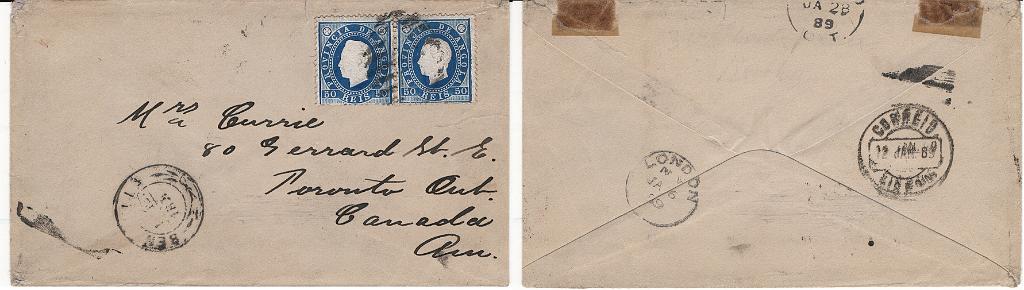 PROVINCIA DE ANGOLA
50 REIS 50
PROVINCIA DE ANGOLA
50 REIS 50
Mrs a Currie
80 Gerrard St. E.
Toronto Ont.
Canada
Am.
BEN
JA 28
89
LONDON
JA
89
CORREIO
12 JAN 89